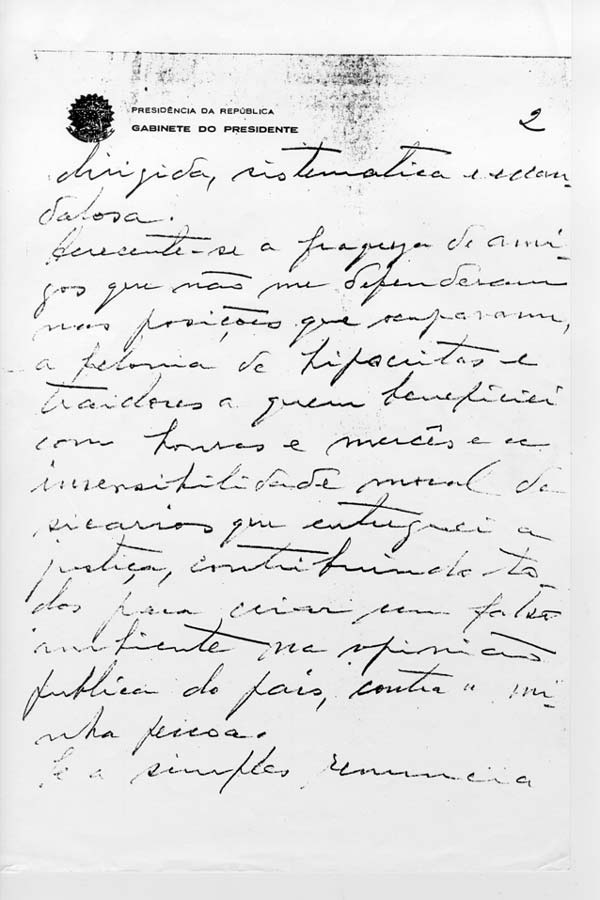 PRESIDÊNCIA DA REPÚBLICA
GABINETE DO PRESIDENTE
2
dirigida, sistematica e escan-
dalosa.
Acrecente-se a fraqueza de ami-
gos que não me defenderam
nas posições que ocupavam,
a felonia de hipocritas e
traidores a quem beneficiei
com honras e mercês e a
insensibilidade moral de
sicarios que entreguei a
justiça, contribuindo to-
dos para criar um falso
ambiente na opinião
publica do país, contra a mi-
nha pessoa.
Se a simples renuncia